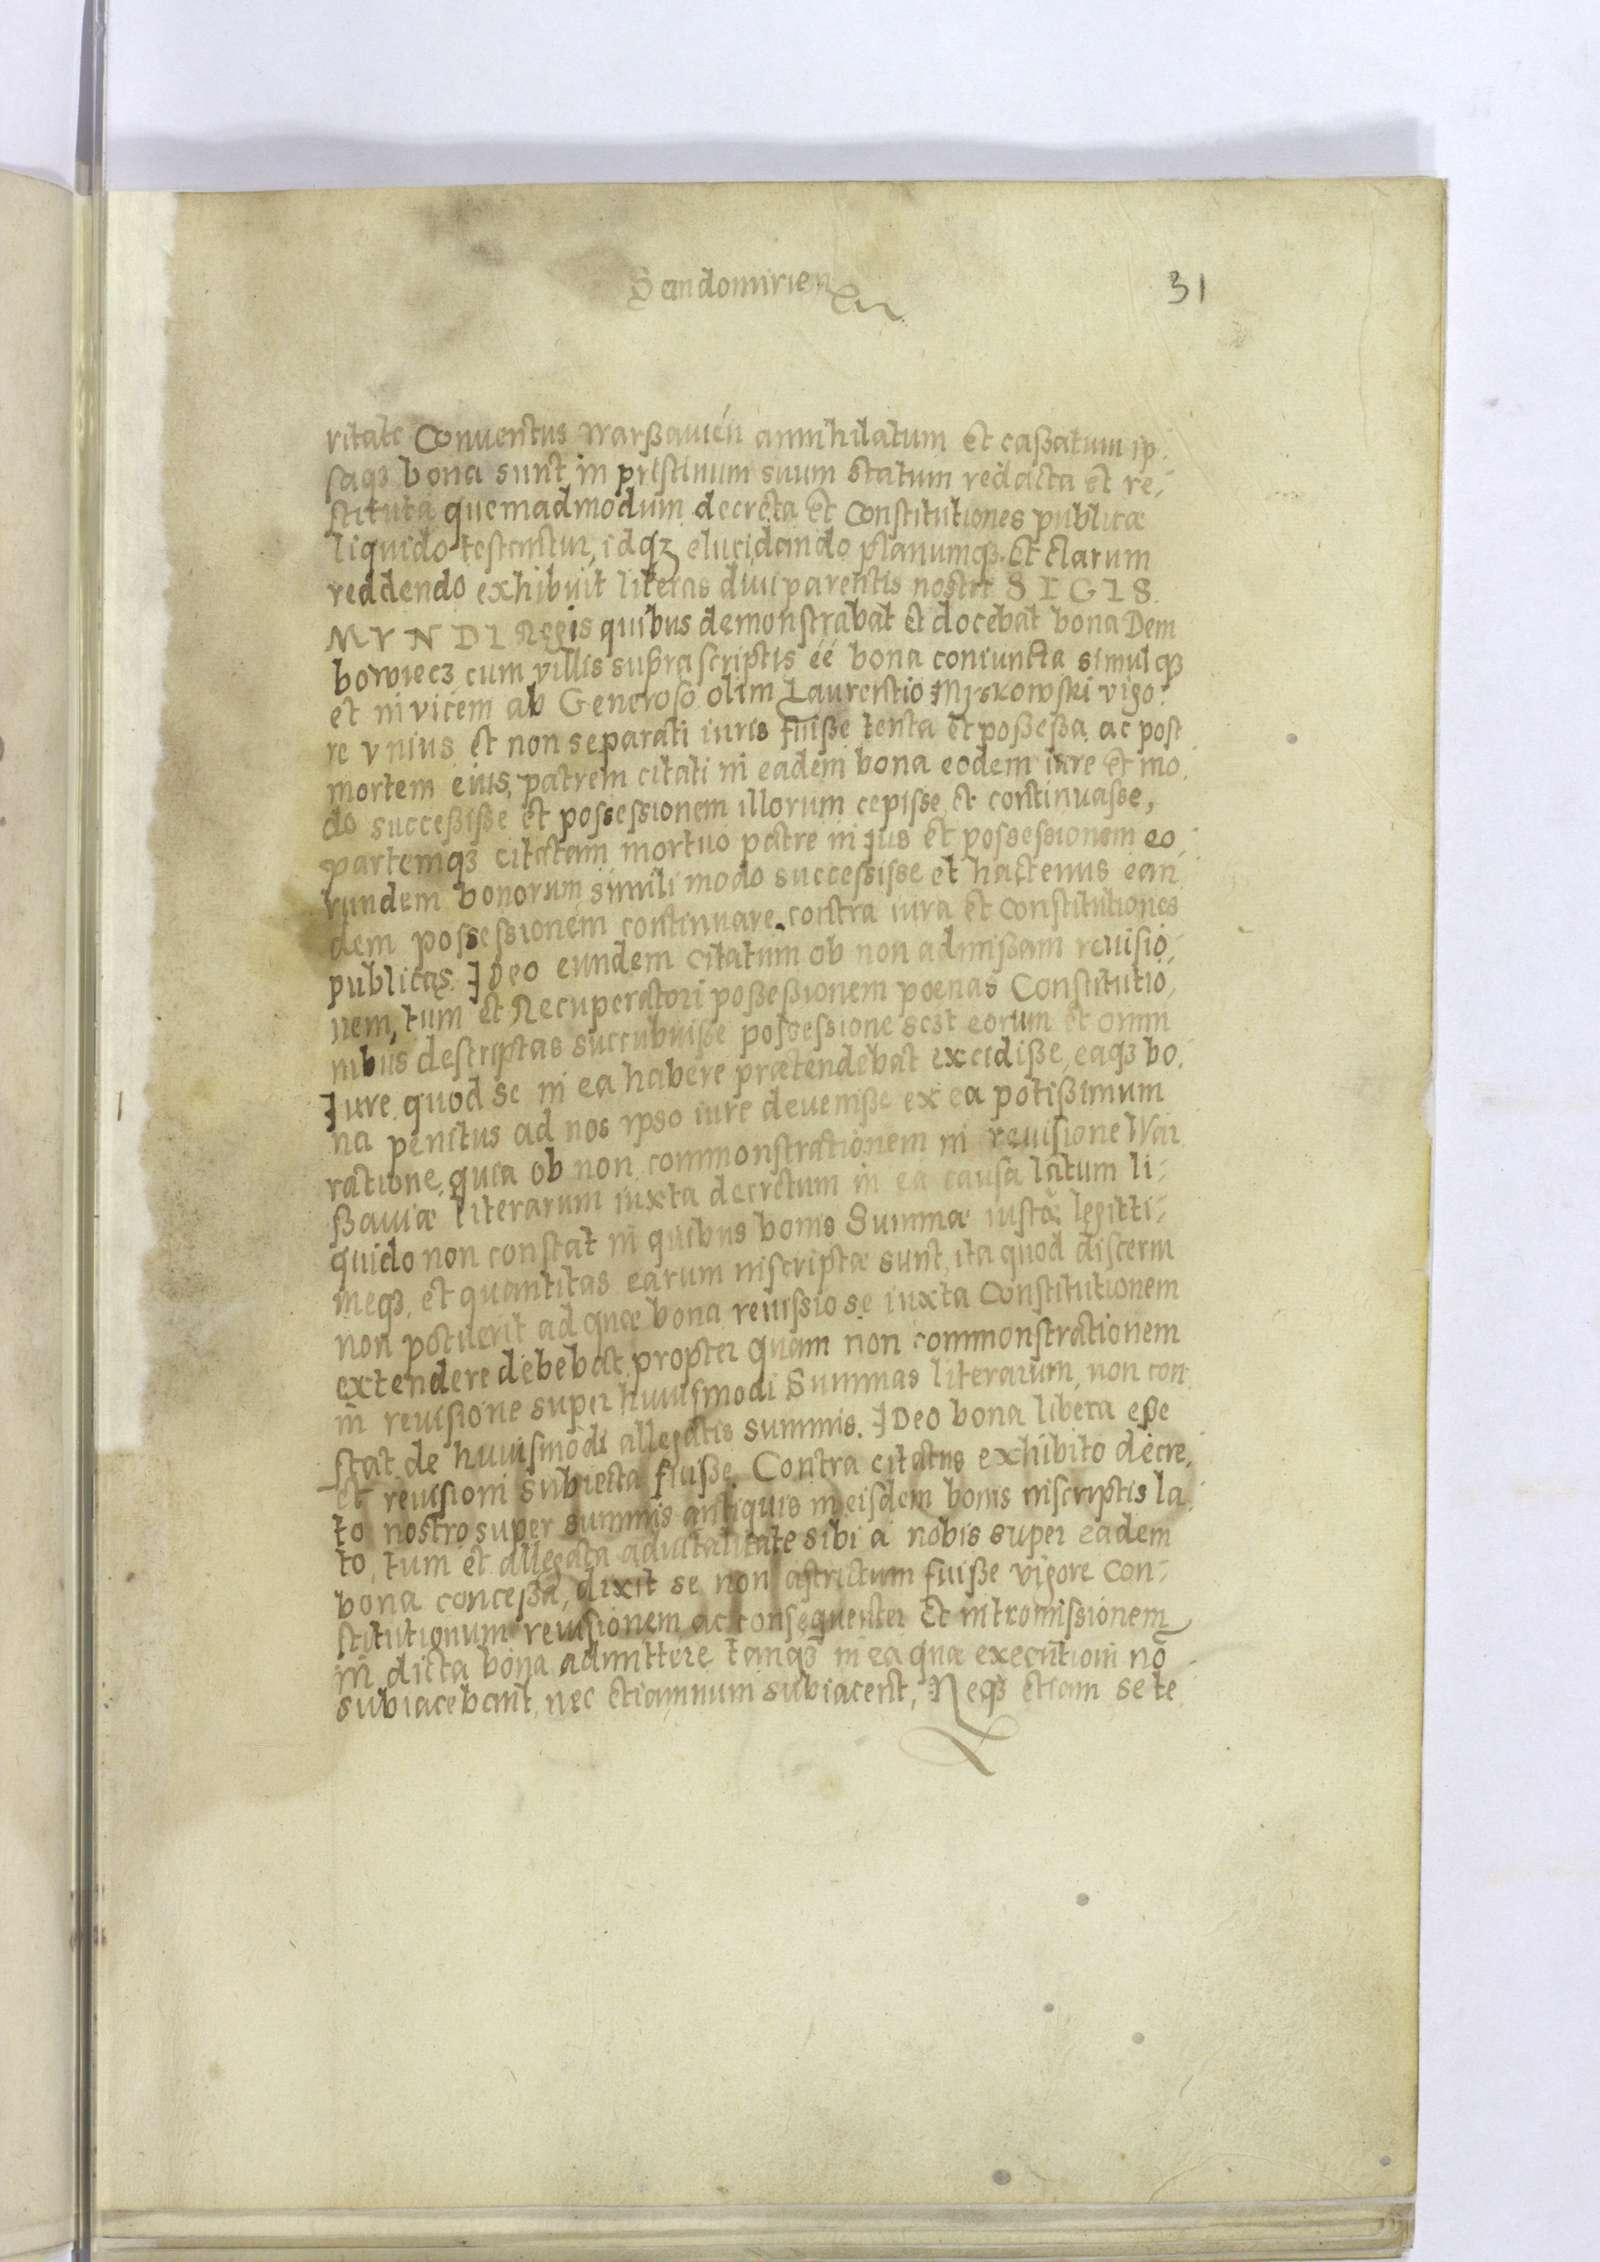 Sandomirien
31
ritate Conuentus warßauień annihilatum et caßatum ip,
saqʒ bona sunt in pristinum suum statum redacta et re,
stituta quemadmodum decreta et Constitutiones publicæ
liquido testantur, idqʒ elucidando planumqʒ et clarum
reddendo exhibuit literas diui parentis nostri SIGIS
MVNDI Regis quibus demonstrabat et docebat bona Dem
bowiecz cum villis suprascriptis éé bona coniuncta simulqʒ
et in vicem ab Generoso olim Laurentio Myskowski vigo,
re vnius et non separati iuris fuiße tenta et poßeßa ac post
mortem eius, patrem citati in eadem bona eodem iure et mo,
do succeßiße et possessionem illorum cepisse et continuasse,
partemqʒ citatam mortuo patre in Jus et possessionem eo,
rundem bonorum simili modo successisse et hactenus ean
dem possessionem continuare, contra iura et constitutiones
publicas. Ideo eundem citatum ob non admißam reuisio,
nem, tum et Recuperatori poßeßionem poenas Constitutio,
nibus descriptas succubuisse possessione sczt eorum et omni
Jure quod se in ea habere prætendebat excidiße, eaqʒ bo,
na penitus ad nos ipso iure deueniße ex ea potißimum
ratione quia ob non commonstrationem in reuisione War
ßauiæ literarum iuxta decretum in ea causa latum li,
quido non constat in quibus bonis Summæ iustæ legitti,
meqʒ et quantitas earum inscriptæ sunt, ita quod discerni
non potuerit ad quæ bona reuissio se iuxta Constitutionem
extendere debebat, propter quam non commonstrationem
in reuisione super huiusmodi Summas literarum, non con
stat de huiusmodi allegatis summis. Ideo bona libera eße
et reuisioni subiecta fuiße. Contra citatus exhibito decre,
to nostro super summis antiquis in eisdem bonis inscriptis la,
to, tum et allegata aduitalitate sibi a nobis super eadem
bona conceßa, dixit se non astrictum fuiße vigore Con,
stitutionum reuisionem ac consequenter et intromissionem
in dicta bona admittere tanqʒ in ea quæ executioni nō
subiacebant, nec etiamnum subiacent, Neqʒ etiam se te